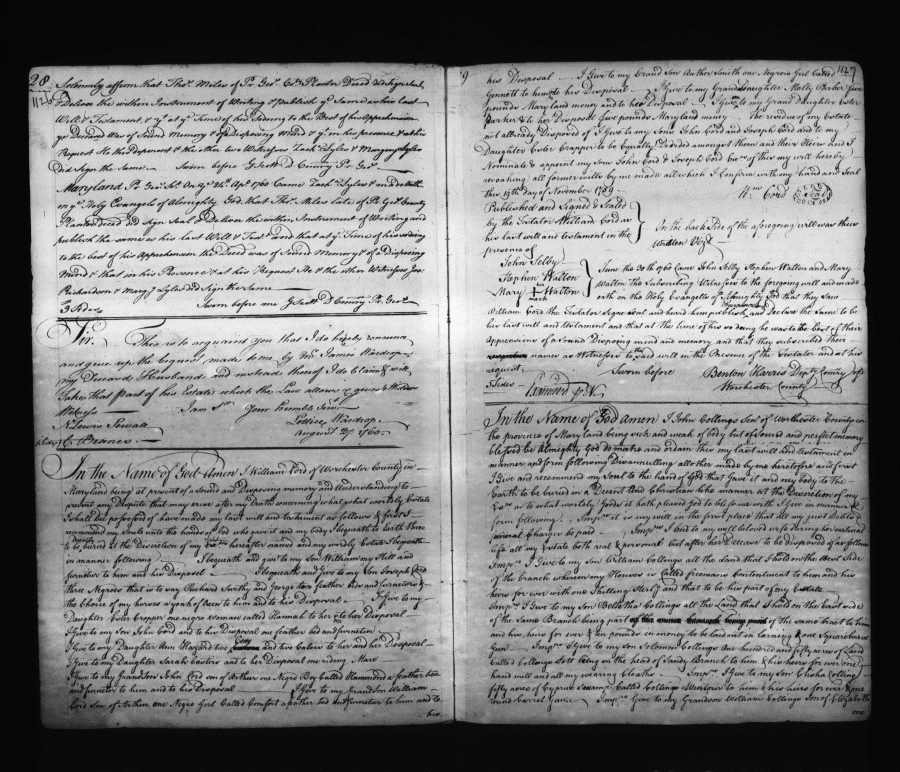 28
1126
Solemnly affirm that Thos. Miles of Po Geos. Cty Planter Decd did sign Seal
& Deliver the within Instrument of Writing & publish ye Same as his last
Will & Testament, & yt at ye Time of his Signing to the Best of his Apprehension
ye Deceasd Was of Sound Memory & of Disposing Mind & yt in his presence & at his
Request He the Deponent & the other two Witnesses Zach Lyles & Margery Lyles
Did Sign the Same. Sworn before
County Po Geos
Maryland Po Geos Sst. On ye 24th Apr 1760 Came Zach Lyles & made Oath
on ye Holy Evangels of Almighty God that Thos Miles late of Po Geos County
Planter deced did Sign Seal & Deliver the within Instrument of Writing and
publish the same as his last Will & Test and that at ye Time of his so doing
to the best of his Apprehension the Deced was of Sound Memory & of a Disposing
Mind & that in his Presence & at his Request He & the other Witnesses Jos
Richardson & Margy Lyles did Sign the Same
3 Sides Sworn before me
D County Po Geos
Sir. This is to acquaint you that I do hereby renounce
and give up the bequest made to me by Mr James Wardrop
my Deceased Husband and instead thereof I do Claim & will
take that part of his Estate which the Law allows & gives a Widow
Witness I am Sr Your humble Servt
N. Lewis Sewall Lettice Wardrop
C Branco August 25 1760
In the Name of God Amen I William Cord of Worchester County in
Maryland being at present of a Sound and Disposeing memory and Understanding to
prevent any Dispute that may arive after my Death concerning what what worldly Estate
I shall Die possessed of have made my last will and testament as follows & first I
recommend my Soule into the hands of God who gave it and my body I bequeath to Earth there
to be buried at the Discretion of my Exrs hereafter named and my worldly Estate I bequeath
in manner following I bequeath and give to my Son William my Still and
furnitor to him and his Disposal I bequeath and Give to my Son Joseph Cord
three Negroes that is to say Richard Smithy and George two feather beds and furneture &
the Choice of my horses a yoak of Oxen to him and to his Disposal I give to my
Daughter Ester Cropper one negro woman called Hannah to her & to her Disposal
I Give to my Son John Cord and to his Disposal one feather bed and furneter
I Give to my Daughter Ann Hazard two Cows and two Calves to her and her Disposal
I Give to my Daughter Sarah Easters and to her Disposal one riding Mare
I Give to my Grandson John Cord son of Arthur one Negro Boy Called Hammond a feather bed
and furneter to him and to his Disposal I give to my Grandson William
Cord Son of Arthur one Negro Girl Called Comfort a feather bed and furneter to him and to
his
9
1127
his Disposal I Give to my Grand Son Arther Smith one Negroe Girl Called
Gennett to him & to his Disposal I Give to my Grand Daughter Molly Parker five
pounds Maryland money and to her Disposal I Give to my Grand Daughter Ester
Parker & to her Disposal five pounds Maryland money the residue of my Estate
not allready Disposed of I Give to my Sons John Cord and Joseph Cord and to my
Daughter Ester Crapper to be Equally Divided amongst them and heirs
Nominate & appoint my Sons John Cord & Joseph Cord Exrs of this my will hereby
revoaking all former wills by me made all which I Confirm with my hand and Seal
this 19th Day of November 1759
Wm Cord Seal
Published and Signed & Sealed
by the Testator William Cord as
his last will and testament in the
presence of
On the back Side of the aforegoing will was thus
written Vizt
John Selby
Stephen Walton
Mary Walton
her mark
June the 30th 1760 Came John Selby Stephen Walton and Mary
Walton the Subscribing Witnesses to the foregoing will and made
oath on the Holy Evangelis of Almighty God that they Saw
William Cord the Testator Sign Seal and heard him publish and Declare the Same to be
his last will and testament and that at the time of his so doing he was to the best of their
Apprension of a Sound Disposing mind and memory and that they subscribed their
names as Witnesses to the said will in the Presence of the Testator and at his
request. Sworn before Benton Harris Depty Comry of
Worchester County
Sides Examined
In the Name of God Amen I John Collings Senr of Worchester County in
the province of Maryland being sick and weak of body but of sound and perfect memory
blessed be Almighty God do make and ordain this my last will and testament in
manner and form following Disannulling all other made by me heretofore and first
I Give and recommend my Soul to the hand of God that Gave it and my body to the
Earth to be buried in a Decent and Christian like manner at the Discretion of my
Exrs as to what worldly Goods it hath pleased God to bless me with I Give in manner &
form following Imprs it is my will in the first place that all my just Debts &
funeral Charges be paid Imprs I lend to my well beloved wife during her natural
life all my Estate both real & personal but after her Decease to be Disposed of as follows
Imprs I Give to my Son William Collings all the land that I hold on the West Side
of the branch wherein my House is Called freemans Contentment to him and his
heirs for ever with one Shilling Sterlg and that to be his part of my Estate
Imprs I Give to my Son Belitha Collings all the Land that I hold on the East side
of the Same Branch being part of the same tract to him
and his heirs for ever & ten pounds in money to be laid out in larning & one Square barrel
Gun Imprs I Give to my Son Solomon Collings One hundred and fifty acres of Land
Called Collings Lott being on the head of Sandy Branch to him & his heirs for ever one
hand mill and all my wearing Cloaths Imprs I Give to my Son Elisha Colling
fifty acres of Cyprus Swamp Called Collings Venture to him & his heirs for ever & one
round barrel Gun Imprs I Give to my Grandson William Collings Son of Elizabeth
one